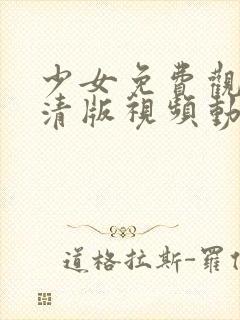 少女免費觀
清版視頻動
道格拉斯-羅